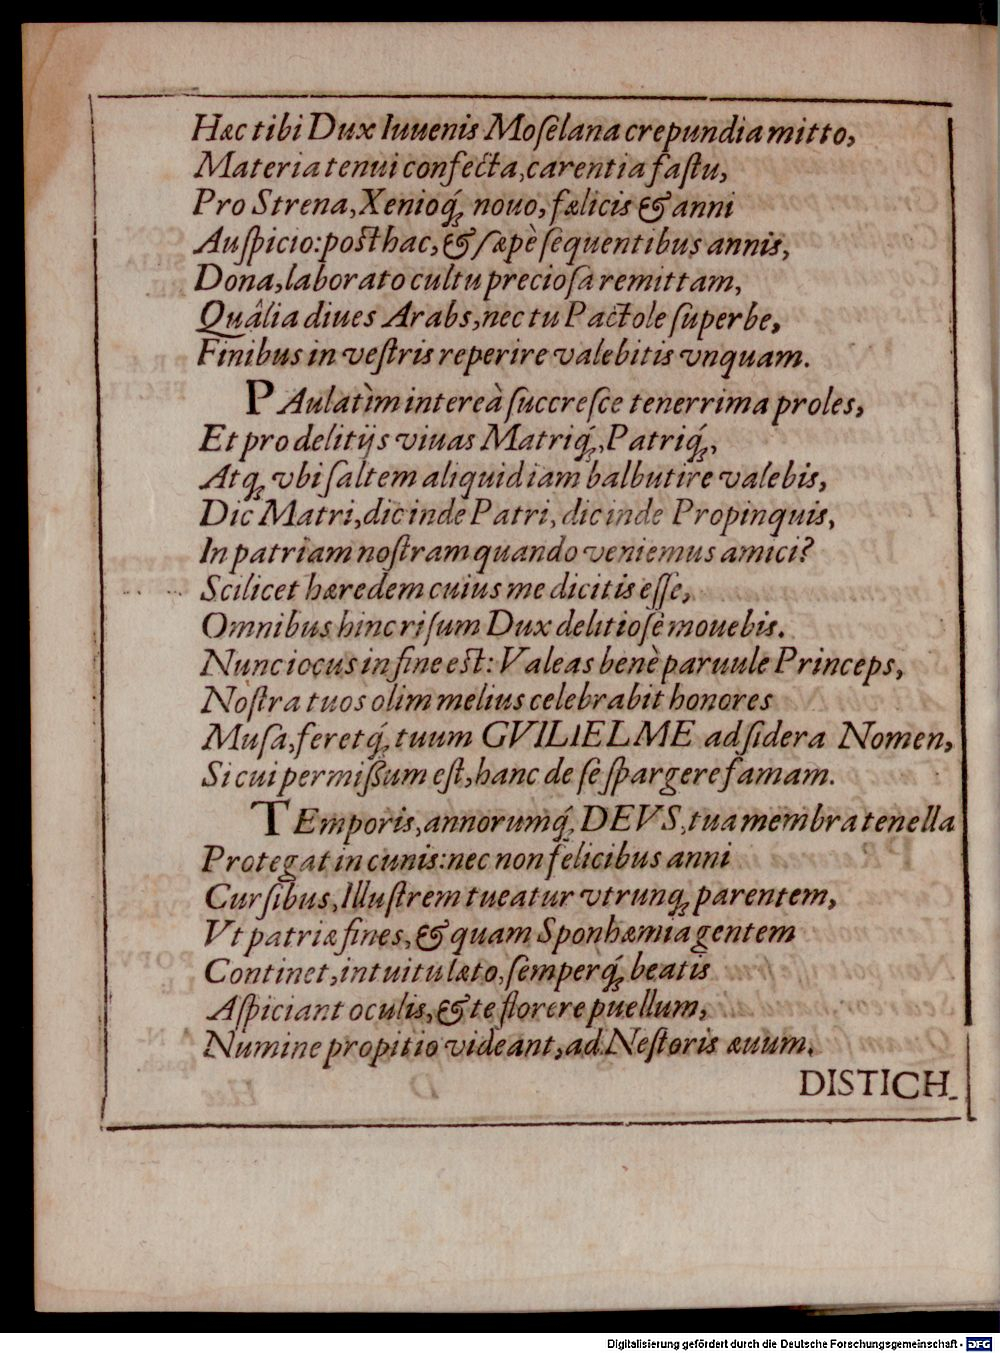 Hæc tibi Dux Iuuenis Moſelana crepundia mitto,
Materia tenui confecta, carentia faſtu,
Pro Strena, Xenioq́ꝫ nouo, fælicis & anni
Auſpicio: poſthac, & ſæpè ſequentibus annis,
Dona, laborato cultu precioſa remittam,
Quâlia diues Arabs, nec tu Pactole ſuperbe,
Finibus in veſtris reperire valebitis vnquam.
PAulatìm intereà ſuccreſce tenerrima proles,
Et pro delitijs viuas Matriq́ꝫ, Patriq́ꝫ,
Atqꝫ vbi ſaltem aliquid iam balbutire valebis,
Dic Matri, dic inde Patri, dic inde Propinquis,
In patriam noſtram quando veniemus amici?
Scilicet hæredem cuius me dicitis eſſe,
Omnibus hinc riſum Dux delitioſe mouebis.
Nunc iocus in fine eſt: Valeas benè paruule Princeps,
Noſtra tuos olim melius celebrabit honores
Muſa, feretq́ꝫ tuum GVILIELME ad ſidera Nomen,
Si cui permiſſum eſt, hanc de ſe ſpargere famam.
TEmporis, annorumq́ꝫ DEVS, tua membra tenella
Protegat in cunis: nec non felicibus anni
Curſibus, Illuſtrem tueatur vtrunqꝫ parentem,
Vt patriæ fines, & quam Sponhæmia gentem
Continet, intuitu læto, ſemperq́ꝫ beatis
Aſpiciant oculis, & te florere puellum,
Numine propitio videant, ad Neſtoris æuum.
DISTICH_
Digitalisierung gefördert durch die Deutsche Forschungsgemeinschaft - DFG